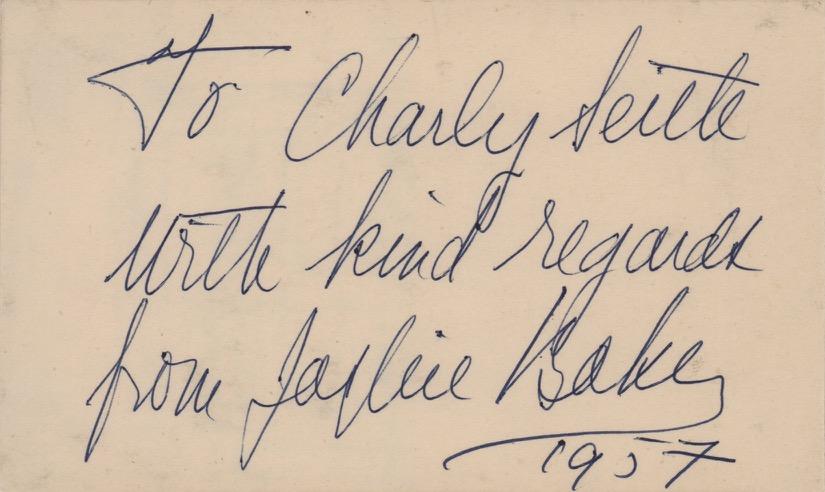 To Charly
With kind regards
from Baker
1957